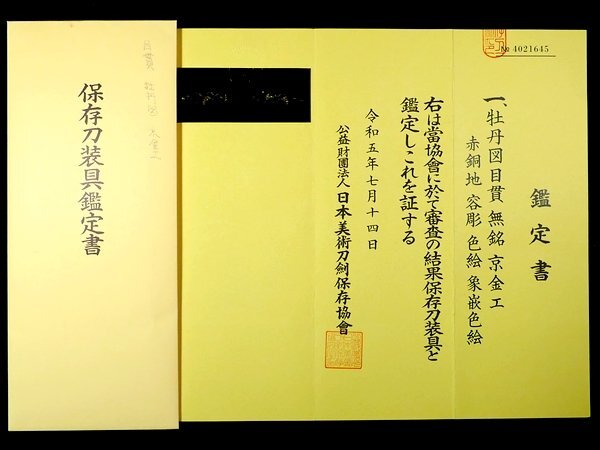 № 4021645
鑑定書
一、牡丹図目貫 無銘 京金工
赤銅地 容彫 色絵 象嵌色絵
右は當協會に於て審査の結果保存刀装具と
鑑定しこれを証する
令和五年七月十四日
公益財團法人 日本美術刀劍保存協會
保存刀装具鑑定書
目貫 牡丹図